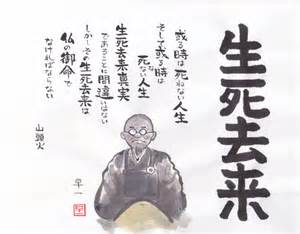 生死去来
或る時は死ねない人生
そして或る時は
死なない人生
生死去来真実
であることに間違いはない
しかしその生死去来は
仏の御命で
なければならない
山頭火
早一